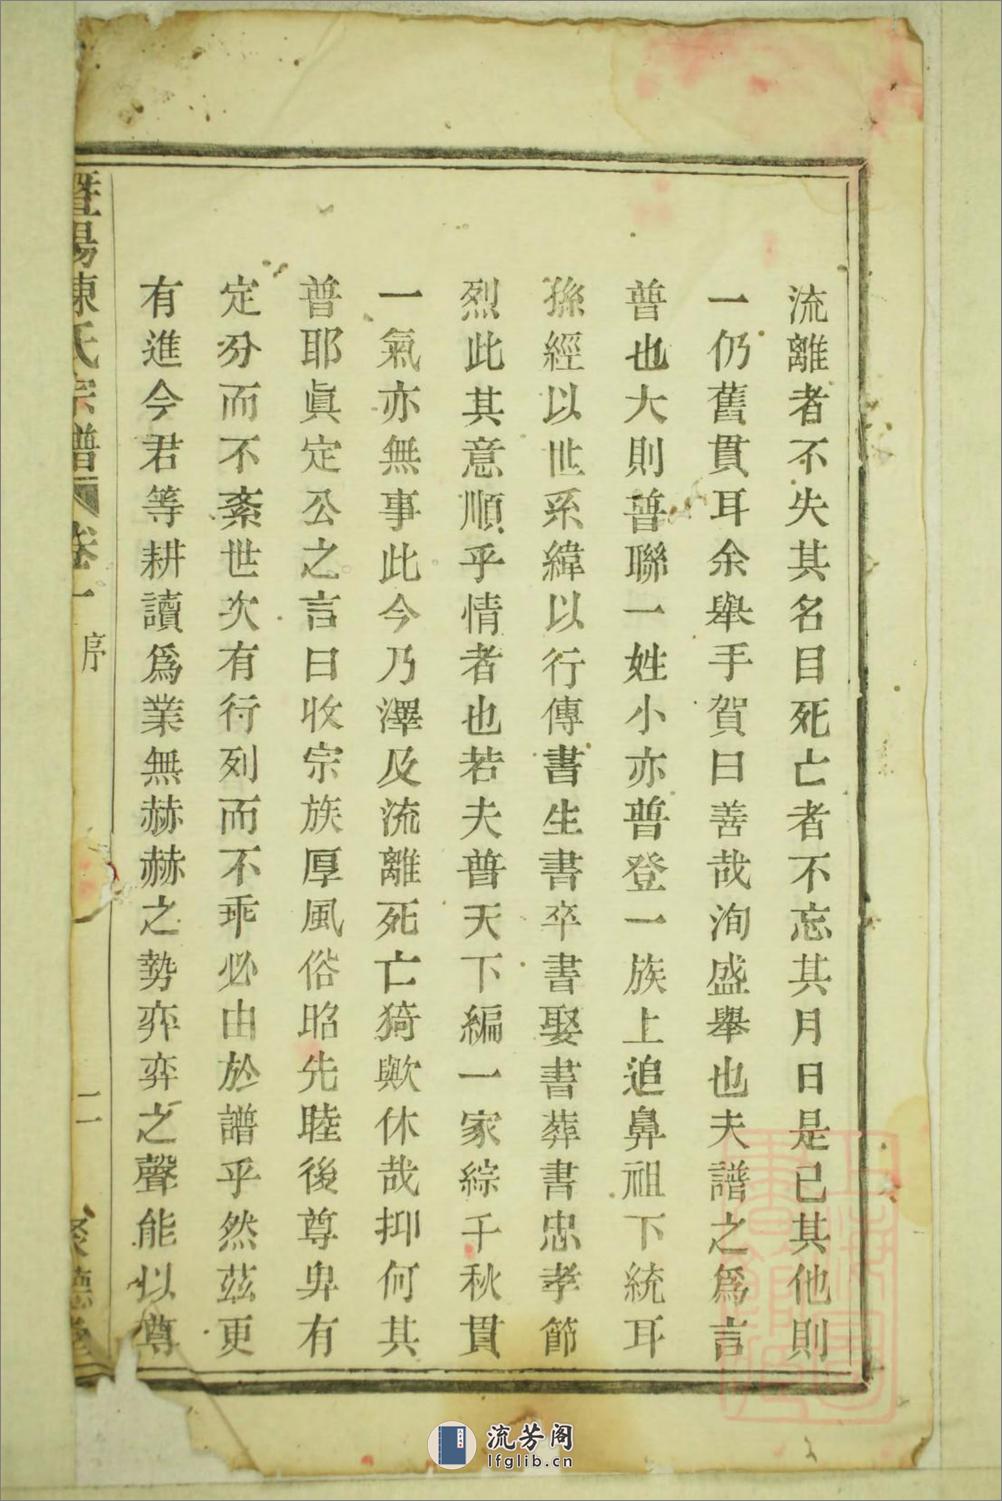 流離者不失其名目死亡者不忘其月日是已其他則
一仍舊貫耳余舉手賀曰善哉洵盛舉也夫譜之爲言
普也大則普聯一姓小亦普登一族上追鼻祖下統耳
孫經以世系緯以行傳書生書卒書娶書葬書忠孝節
烈此其意順乎情者也若夫普天下編一家綜千秋貫
一氣亦無事此今乃澤及流離死亡猗歟休哉抑何其
普耶眞定公之言曰收宗族厚風俗昭先睦後尊卑有
定分而不紊世次有行列而不乖必由於譜乎然茲更
有進今君等耕讀爲業無赫赫之勢弈弈之聲能以尊
暨陽陳氏宗譜 卷一 序 二 聚德堂
流芳阁
lfglib.cn